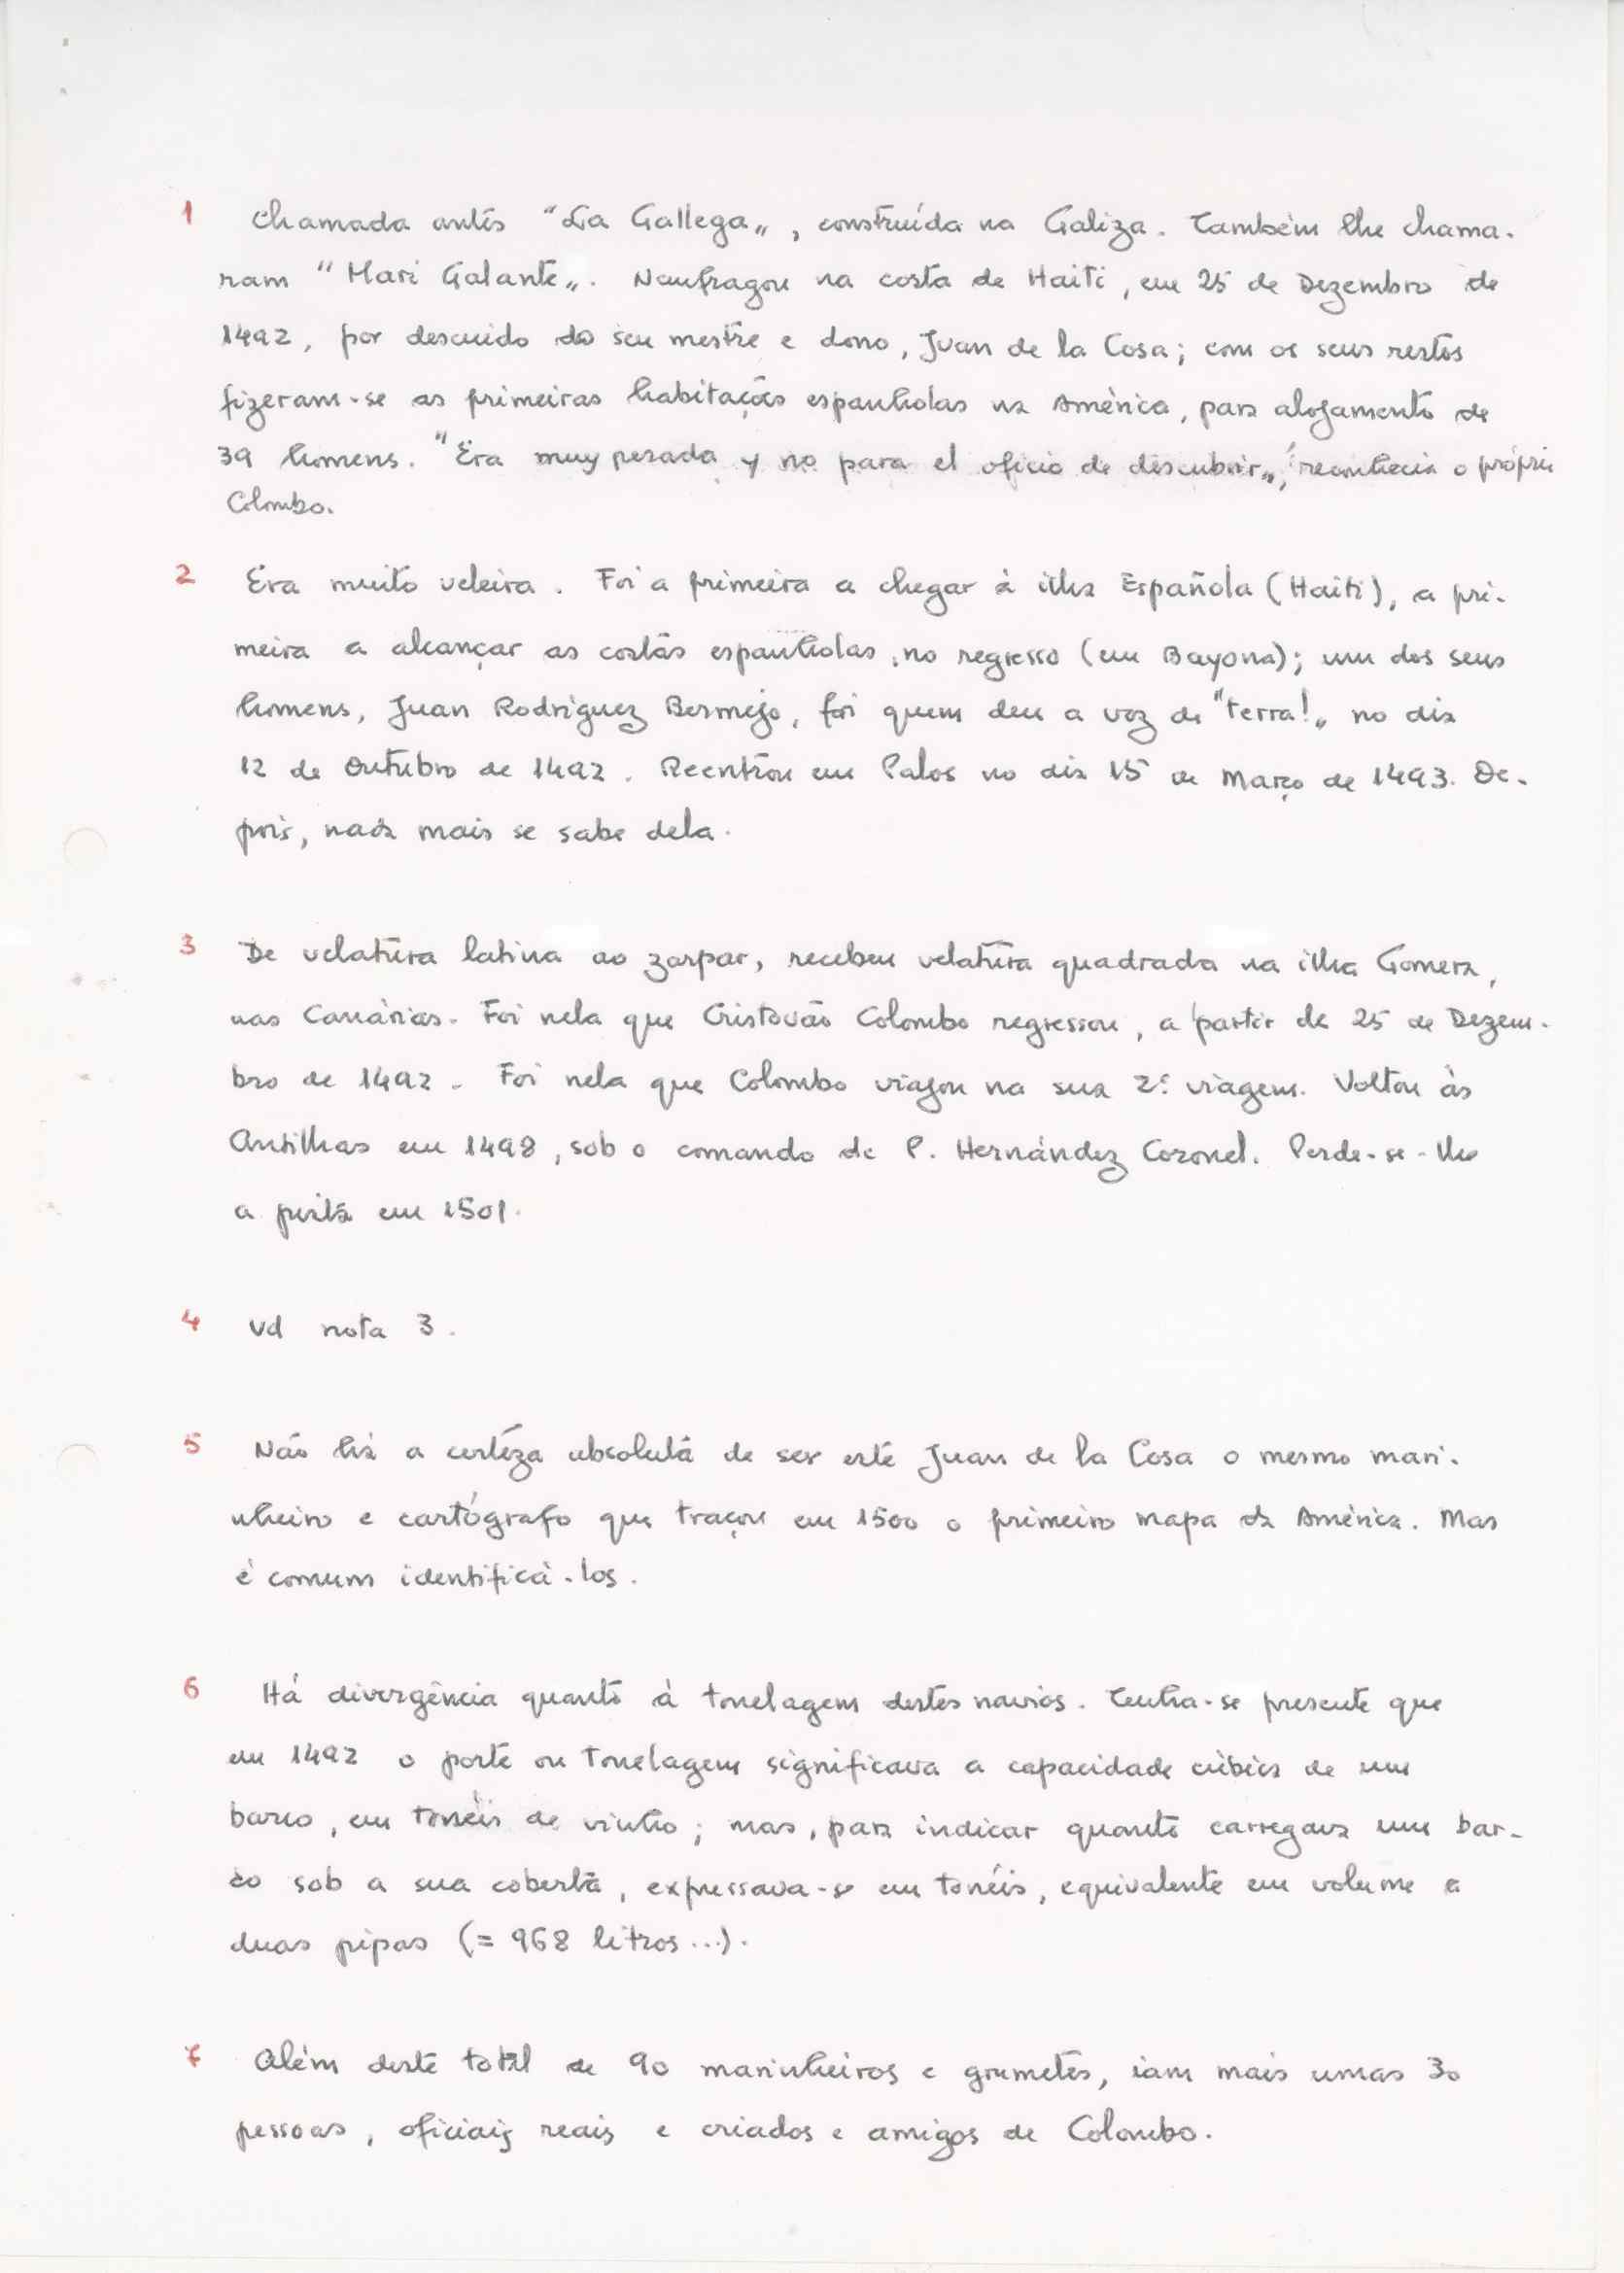 1 Chamada antes "La Gallega", construída na Galiza. Também lhe chama-
ram "Mari Galante". Naufragou na costa de Haiti, em 25 de Dezembro de
1492, por descuido do seu mestre e dono, Juan de la Cosa; com os seus restos
fizeram-se as primeiras habitações espanholas na América, para alojamento de
39 homens. "Era muy pesada y no para el oficio de descubrir", reconhecia o próprio
Colombo.
2 Era muito veleira. Foi a primeira a chegar à ilha Española (Haiti), a pri-
meira a alcançar as costas espanholas, no regresso (em Bayona); um dos seus
homens, Juan Rodríguez Bermejo, foi quem deu a voz de "terra!" no dia
12 de Outubro de 1492. Reentrou em Palos no dia 15 de Março de 1493. De-
pois, nada mais se sabe dela.
3 De velatura latina ao zarpar, recebeu velatura quadrada na ilha Gomera,
nas Canárias. Foi nela que Cristóvão Colombo regressou, a partir de 25 de Dezem-
bro de 1492. Foi nela que Colombo viajou na sua 2ª viagem. Voltou às
Antilhas em 1498, sob o comando de P. Hernández Coronel. Perde-se-lhe
a pista em 1501.
4 Vd nota 3.
5 Não há a certeza absoluta de ser este Juan de la Cosa o mesmo mari-
nheiro e cartógrafo que traçou em 1500 o primeiro mapa da América. Mas
é comum identificá-los.
6 Há divergência quanto à tonelagem destes navios. Tenha-se presente que
em 1492 o porte ou tonelagem significava a capacidade cúbica de um
barco, em tonéis de vinho; mas, para indicar quanto carregava um bar-
co sob a sua coberta, expressava-se em tonéis, equivalente em volume a
duas pipas (= 968 litros...).
7 Além deste total de 90 marinheiros e grumetes, iam mais umas 30
pessoas, oficiais reais e criados e amigos de Colombo.